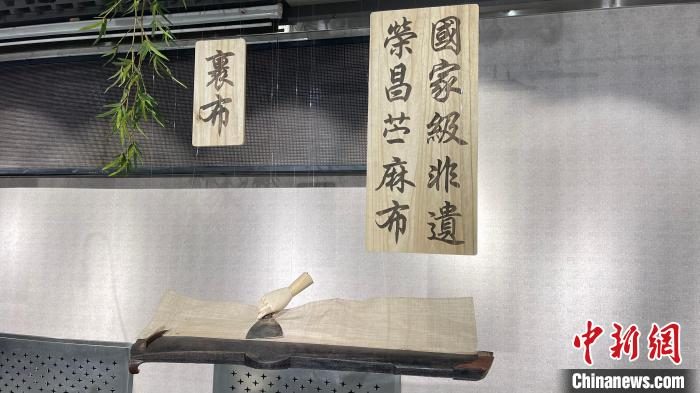 裏布
國家級非遺
榮昌苎麻布
中新网
Chinanews.com